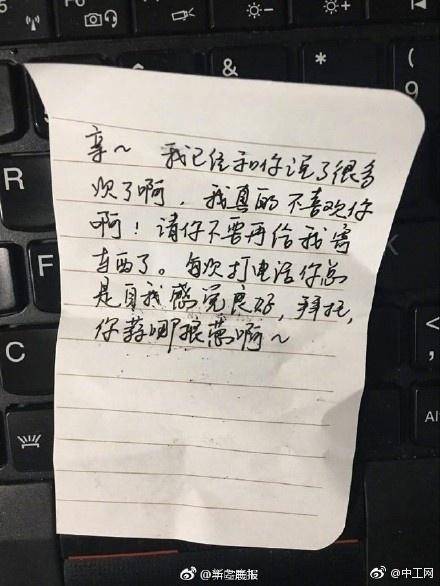 F6
F7
F8
&
7
R
F
C
亲~ 我已经和你说了很多
次了啊，我真的不喜欢你
啊！请你不要再给我寄
东西了。每次打电话你总
是自我感觉良好，拜托，
你算哪根葱啊~
@中工网